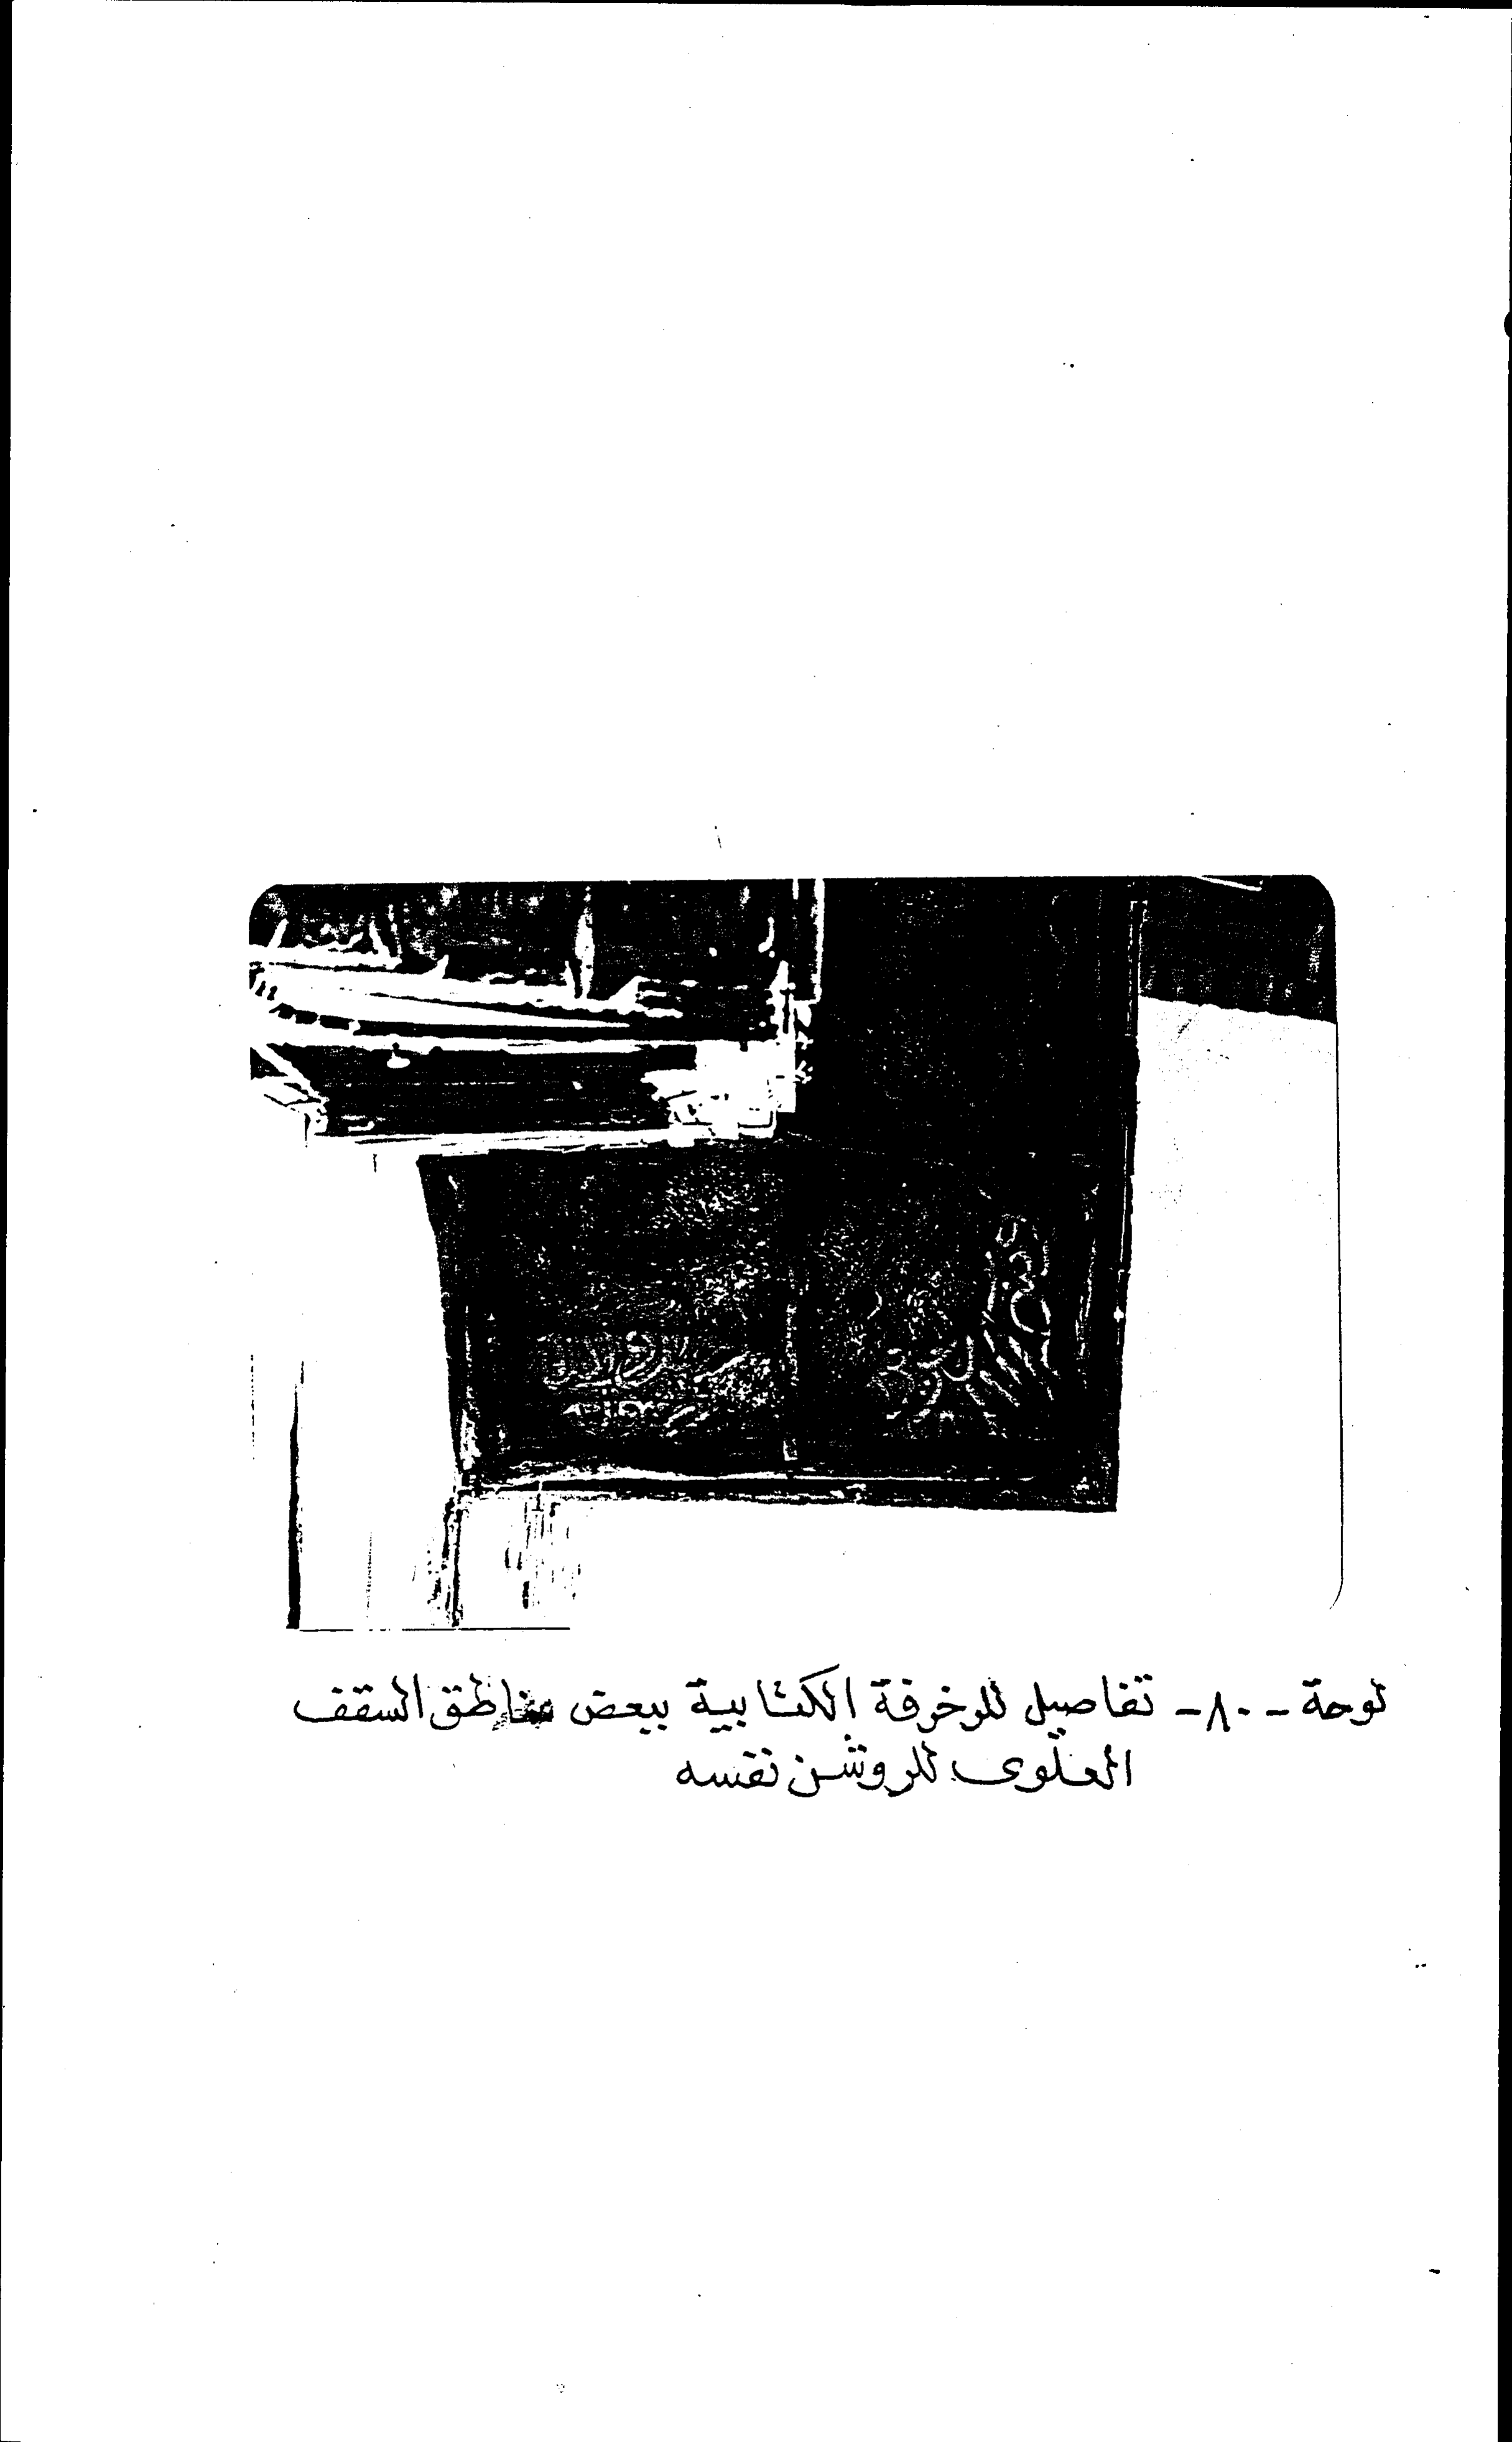 لوحة -٨٠- تفاصيل للزخرفة الكتابية ببعض مناطق السقف
العلوى للروشن نفسه